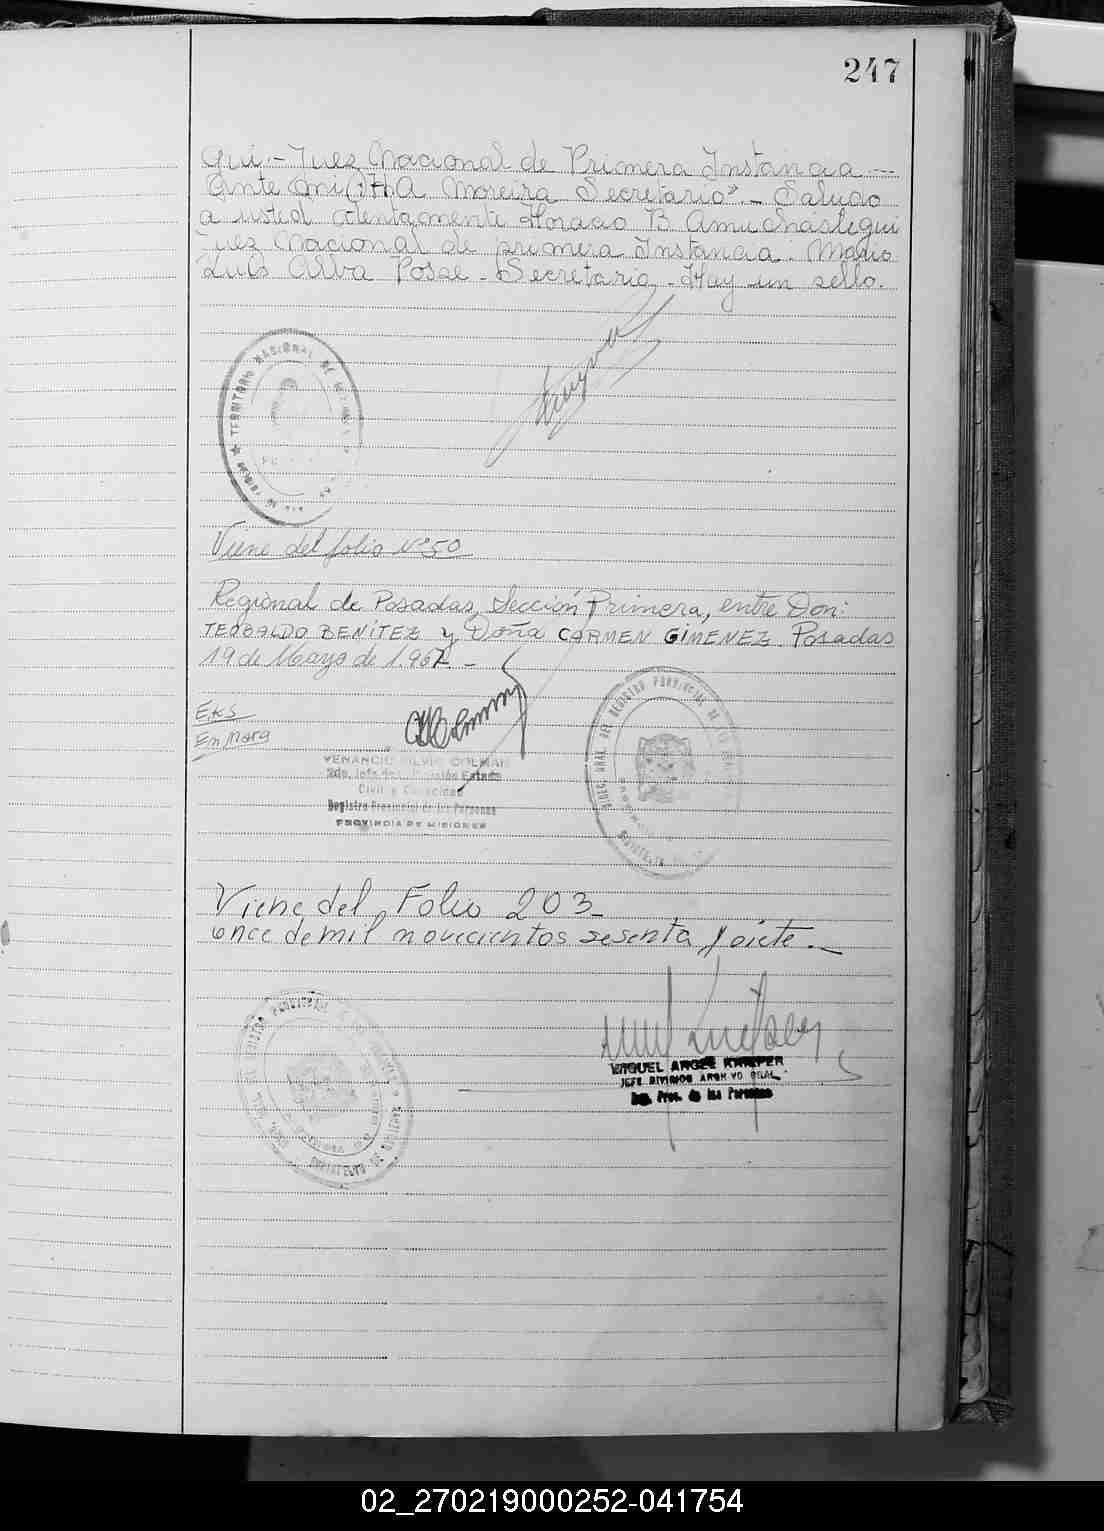 247
gui.- Juez Nacional de Primera Instancia.-
Ante mi(:)H.A Moreira Secretario".- Saludo
a usted atentamente Horacio B Amuchástegui
Juez Nacional de primera Instancia. Mario
Luis Alba Posse - Secretario - Hay un sello.
TERRITORIO NACIONAL DE
Viene del folio Nº 50
Regional de Posadas, Sección Primera, entre Don:
TEOBALDO BENÍTEZ y Doña CARMEN GIMENEZ. Posadas
19 de Mayo de 1.967 -
EKS
En Marg
VENANCIO SILVIO COLMAN
2do. Jefe Estado
Civil y Capacidad
Registro Provincial de las Personas
PROVINCIA DE MISIONES
DEL REGISTRO PROVINCIAL DE LAS
Viene del Folio 203-
once de mil novecientos sesenta y siete.-
REGISTRO PROVINCIAL DE LAS
MIGUEL ANGEL KNIEPER
JEFE DIVISION ARCHIVO GRAL.
Prov. de las Personas
02_270219000252-041754